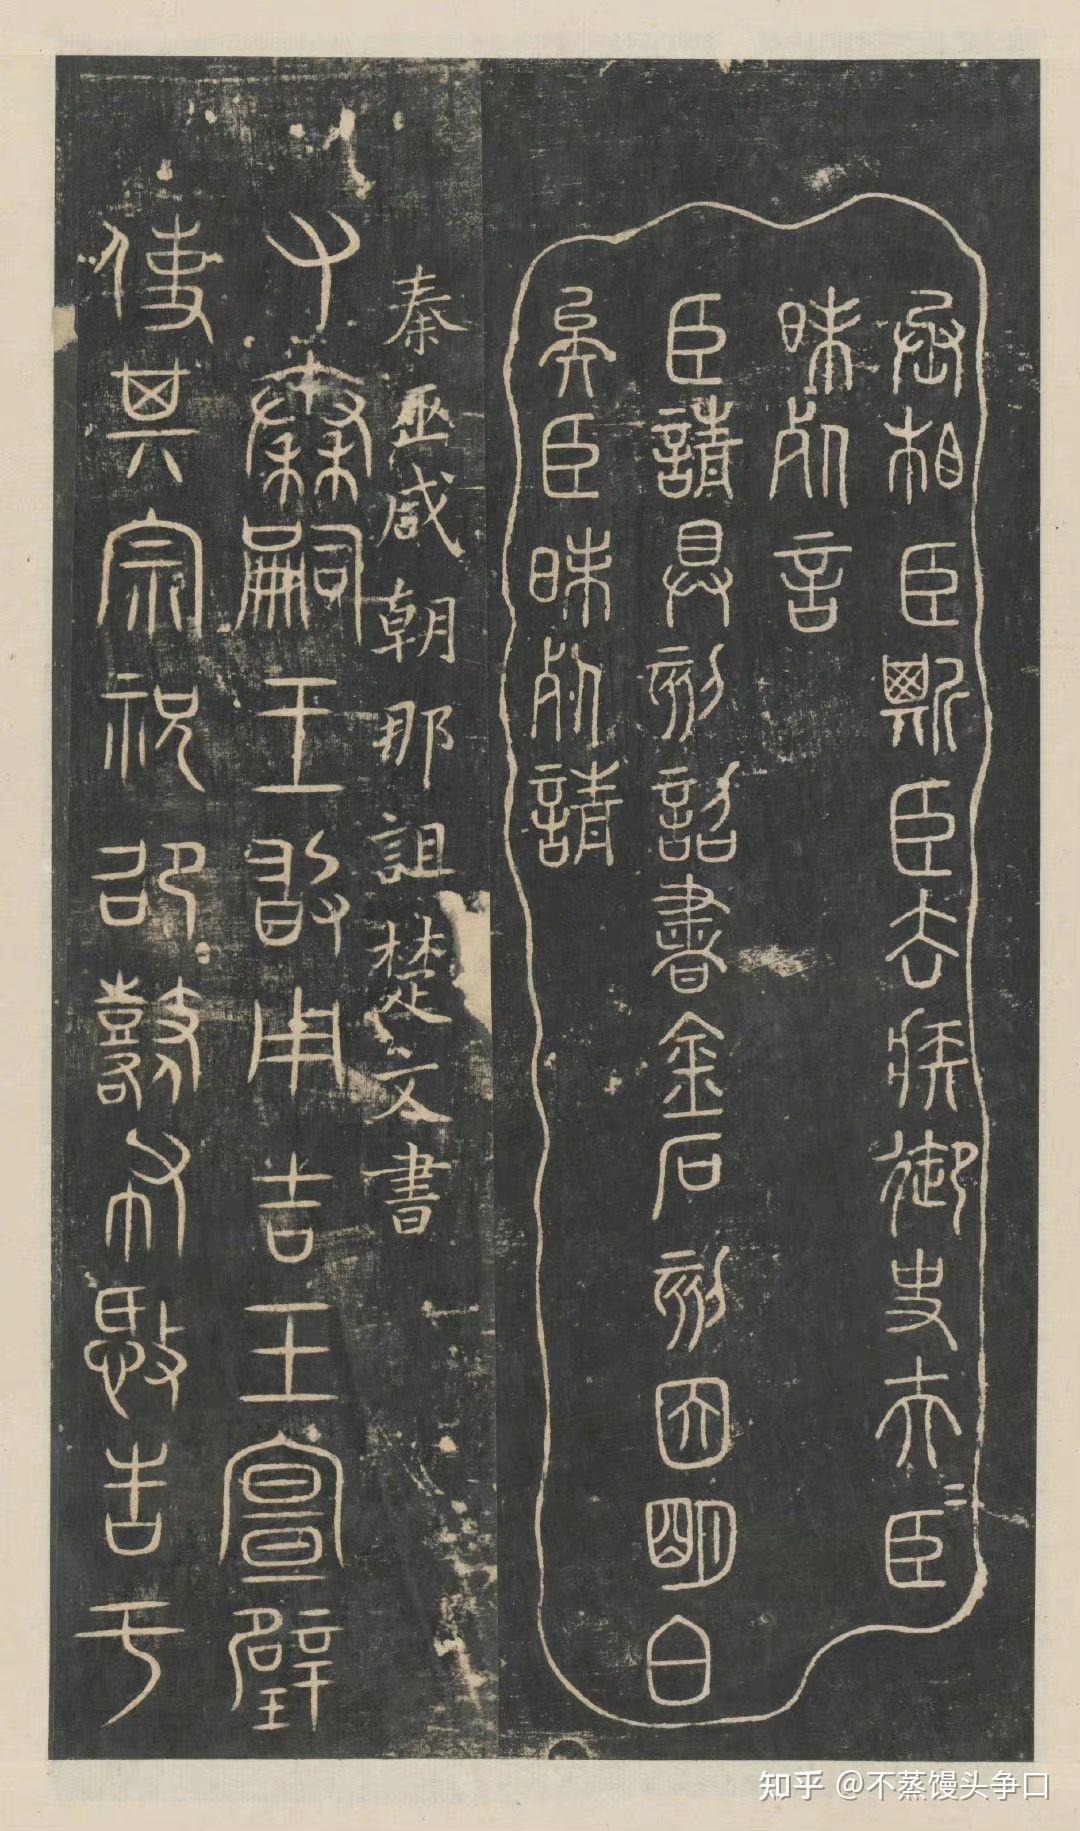 丞相臣斯臣去疾御史夫＝臣
昧死言
臣請具刻詔書金石刻因明白
矣臣昧死請
秦巫咸朝那詛楚文書
又秦嗣王敢用吉玉宣璧
使其宗祝邵鼛布憗告于
知乎 @不蒸馒头争口